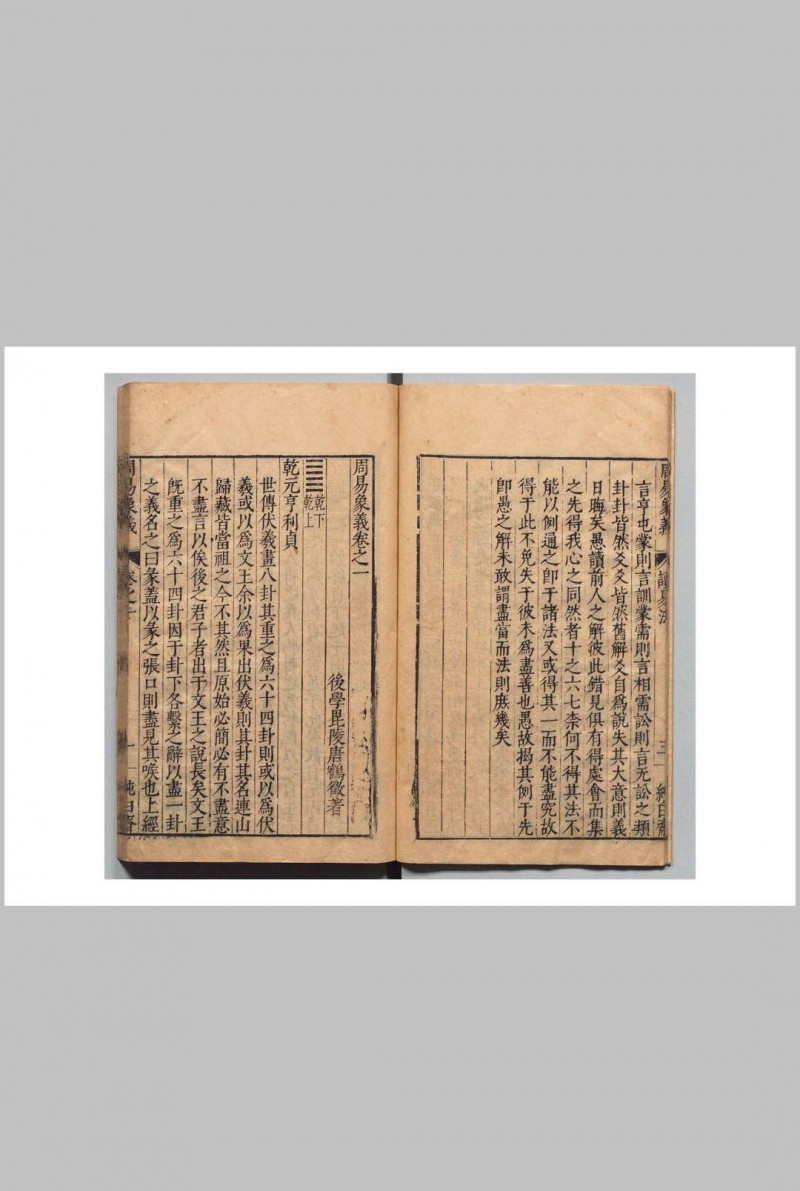 周易象義
讀易法
三
純白齋
言亨屯蒙則言訓蒙需則言相需訟則言无訟之類
卦卦皆然爻爻皆然舊解爻自爲說失其大意則義
日晦矣愚讀前人之解彼此錯見俱有得處會而集
之先得我心之同然者十之六七柰何不得其法不
能以例通之卽于諸法又或得其一而不能盡究故
得于此不免失于彼未爲盡善也愚故揭其例于先
卽愚之解未敢謂盡當而法則庶幾矣
周易象義卷之一
後學毘陵唐鶴徵著
乾下
乾上
乾元亨利貞
世傳伏羲畫八卦其重之爲六十四卦則或以爲伏
羲或以爲文王余以爲果出伏羲則其卦其名連山
歸藏皆當祖之今不其然且原始必簡必有不盡意
不盡言以俟後之君子者出于文王之說長矣文王
旣重之爲六十四卦因于卦下各繫之辭以盡一卦
之義名之曰彖蓋以彖之張口則盡見其喙也上經
周易象義
卷之一
一
純白齋